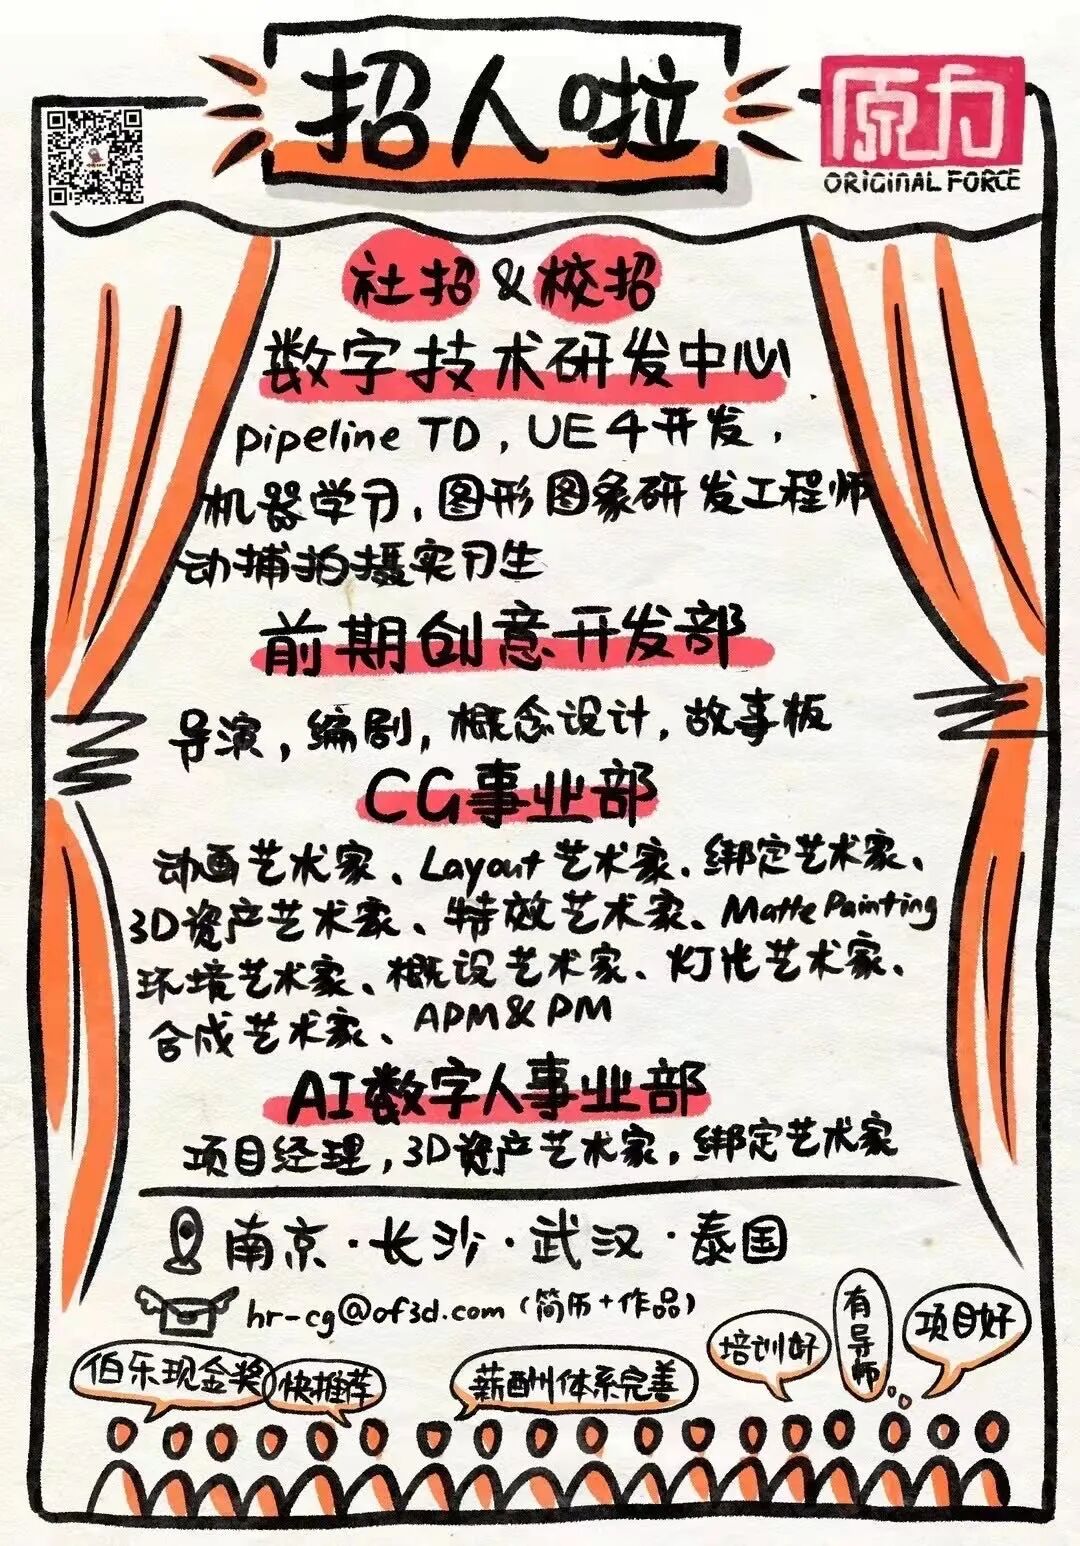 招人啦
原力
ORIGINAL FORCE
社招 & 校招
数字技术研发中心
pipeline TD，UE4开发，
机器学习，图形图象研发工程师
动捕拍摄实习生
前期创意开发部
导演，编剧，概念设计，故事板
CG事业部
动画艺术家、Layout艺术家、绑定艺术家、
3D资产艺术家、特效艺术家、Matte Painting
环境艺术家、概设艺术家、灯光艺术家、
合成艺术家、APM&PM
AI数字人事业部
项目经理，3D资产艺术家，绑定艺术家
南京·长沙·武汉·泰国
hr-cg@of3d.com（简历+作品）
伯乐现金奖
快推荐
薪酬体系完善
培训好
有导师
项目好